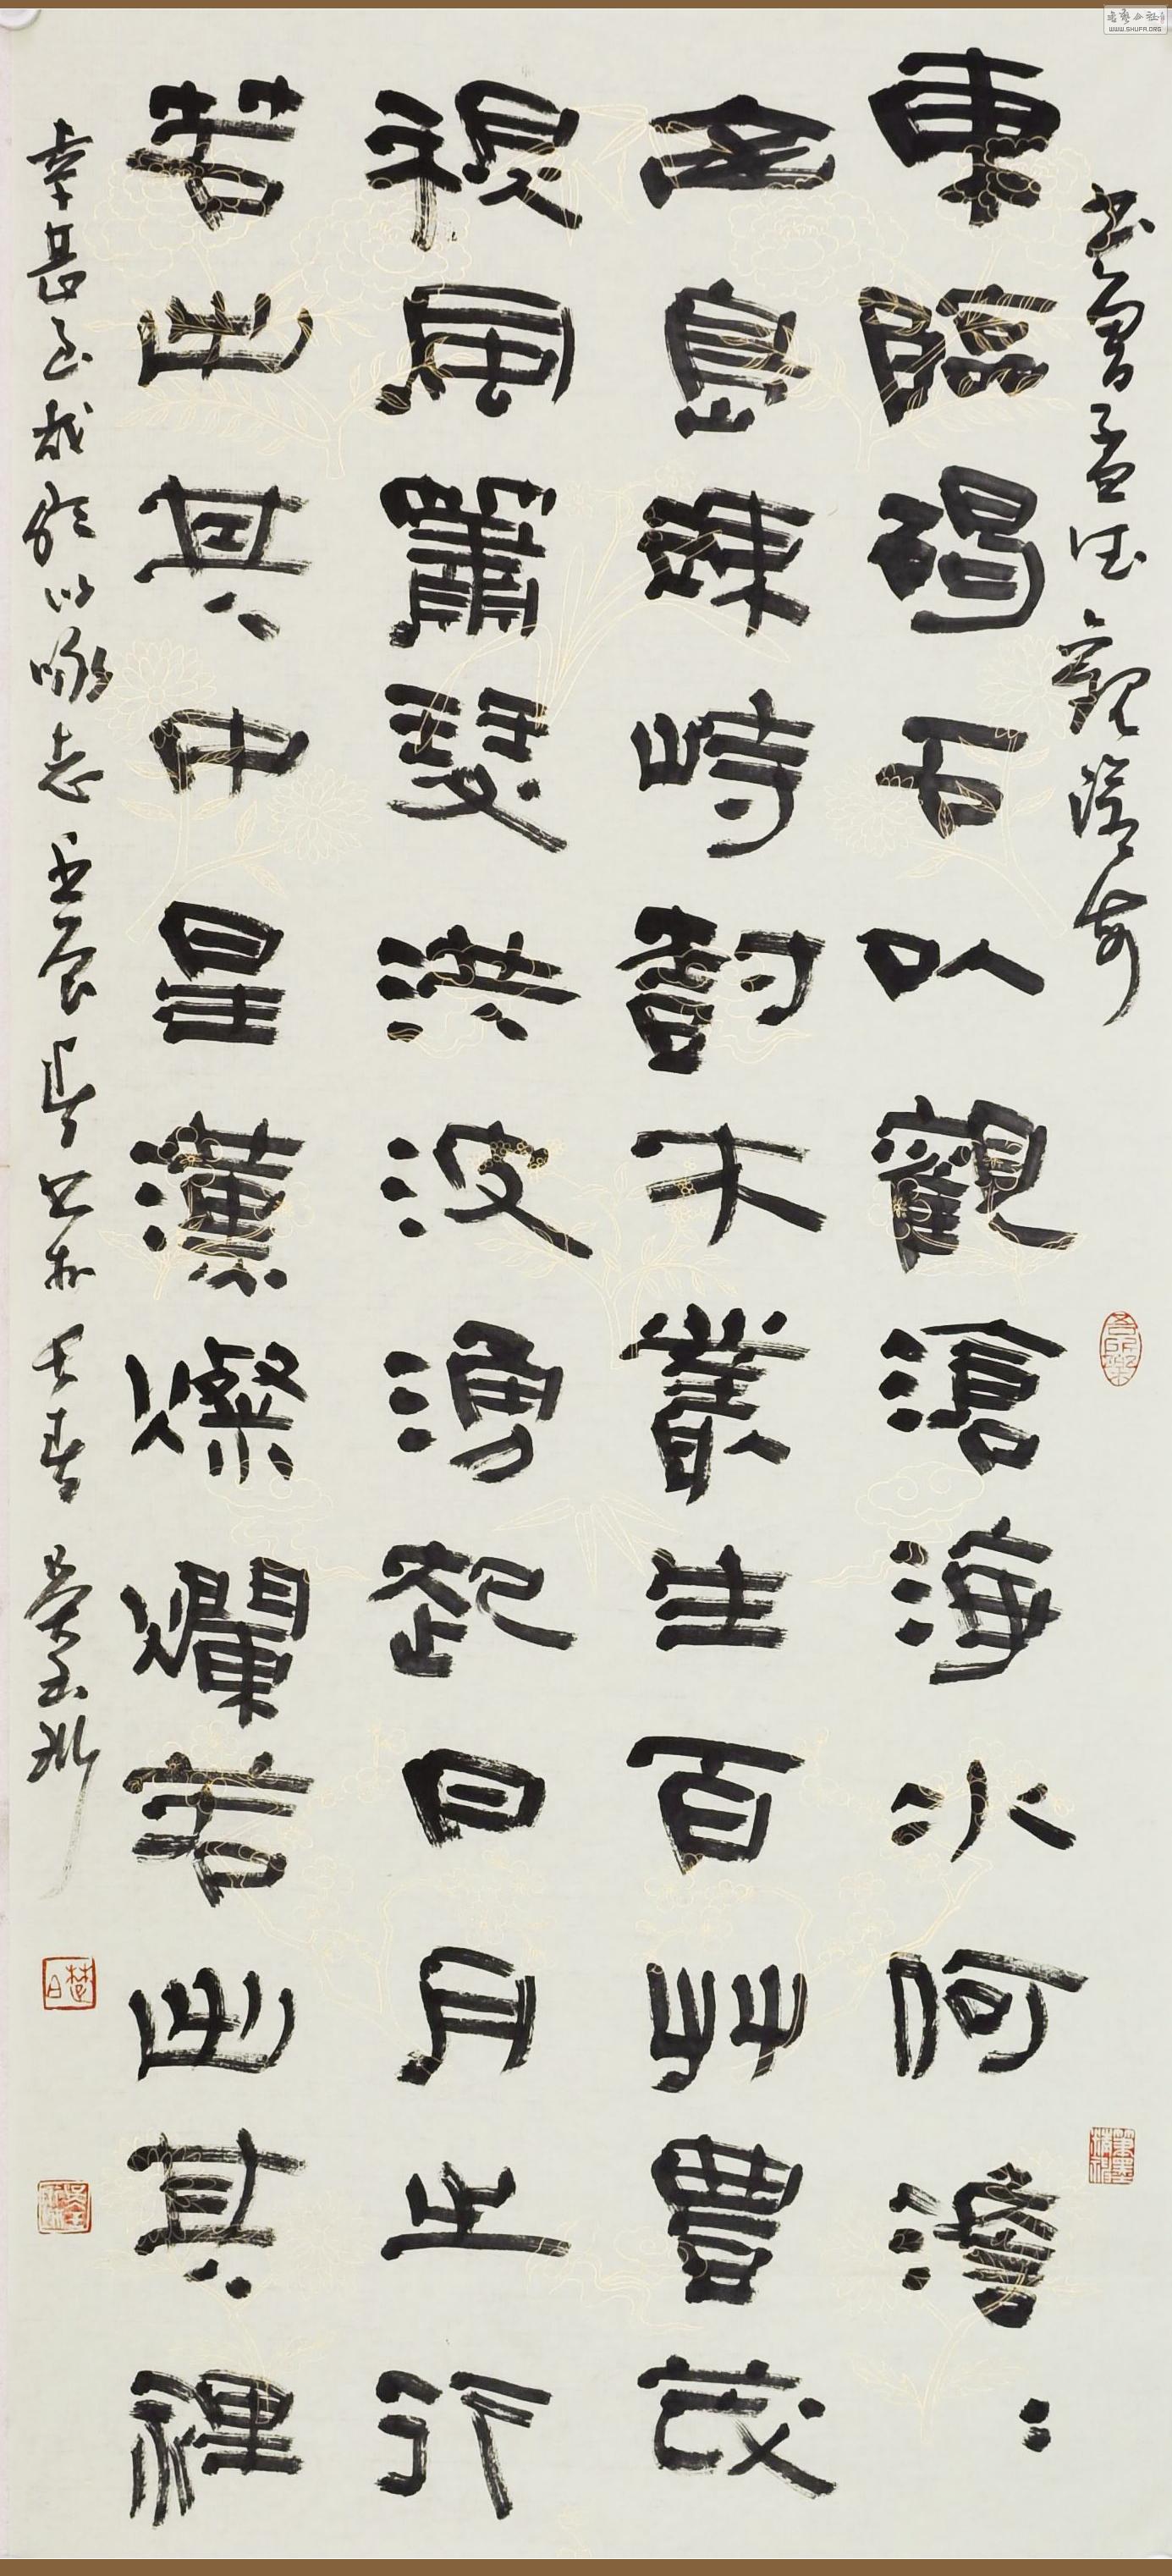 书曹孟德观沧海
東臨碣石以觀滄海水何澹：
山島竦峙樹木叢生百艸豐茂
秋風蕭瑟洪波湧起日月之行
若出其中星漢燦爛若出其裡
幸甚至哉歌以咏志壬辰年書於长春
吾所樂
WWW.SHUFA.ORG